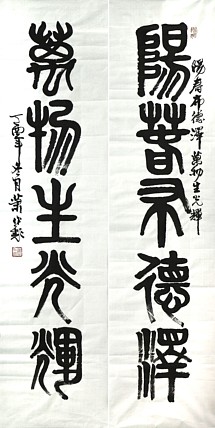 陽春布德澤
陽春布德澤萬物生光輝
萬物生光輝
丁酉年冬月葉